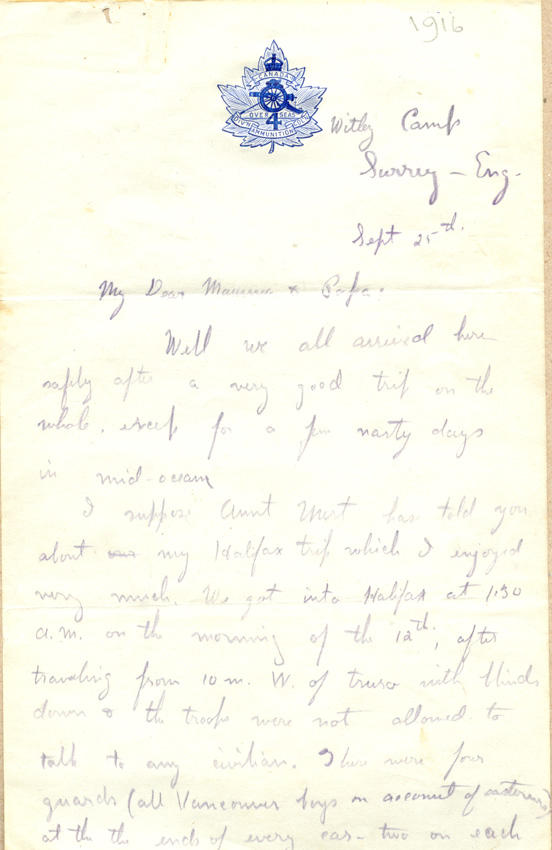 1916
CANADA
4
OVERSEAS
DIV'N AMMUNITION COL.
Witley Camp
Surrey - Eng.
Sept 25th.
My Dear Mamma & Papa.
Well we all arrived here
safly after a very good trip on the
whole. except for a few nasty days
in mid-ocean
I suppose Aunt Mert has told you
about my Halifax trip which I enjoyed
very much. We got into Halifax at 1:30
a.m. on the morning of the 12th, after
traveling from 10 m. W. of Truro with blinds
down & the troops were not allowed to
talk to any civilian. There were four
guards (all Vancouver boys on account of easterners)
at the the ends of every car - two on each